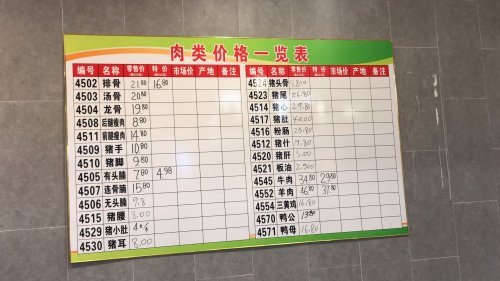 肉类价格一览表
编号 名称 零售价 特价 市场价 产地 备注 编号 名称 零售价 特价 市场价 产地 备注
4502 排骨 21.80 16.80
4503 汤骨 20.80
4504 龙骨 19.80
4508 后腿瘦肉 8.80
4511 前腿瘦肉 14.80
4509 猪手 10.80
4510 猪脚 9.80
4505 有头腩 7.80 4.98
4507 连骨腩 15.80
4506 无头腩 9.8
4515 猪腰 8.00
4529 猪小肚
4530 猪耳 8.00
4524 猪头骨 8.00
4523 猪尾 26.80
4514 猪心 29.80
4517 猪肚 40.00
4516 粉肠 25.80
4512 猪什 19.80
4520 猪肝 3.00
4521 板油 2.500
4545 牛肉 34.80 29.80
4552 羊肉 46.80 37.80
4554 三黄鸡 16.80
4570 鸭公 13.80
4571 鸭母 16.80